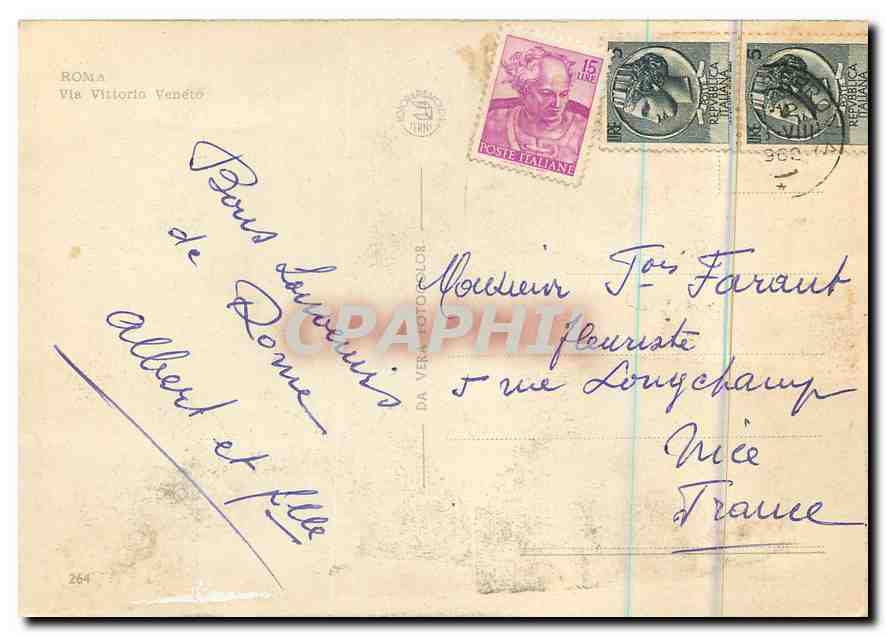 ROMA
Via Vittorio Veneto
15
LIRE
POSTE ITALIANE
5
LIRE
POSTE
REPVBBLICA
ITALIANA
5
LIRE
REPVBBLICA
ITALIANA
VIII
TERNI
DA VERA FOTOCOLOR
Bons souvenirs
de Rome
Albert et fille
Monsieur Fois Faraut
fleuriste
5 rue Longchamp
Nice
France
264
CPAPHIL